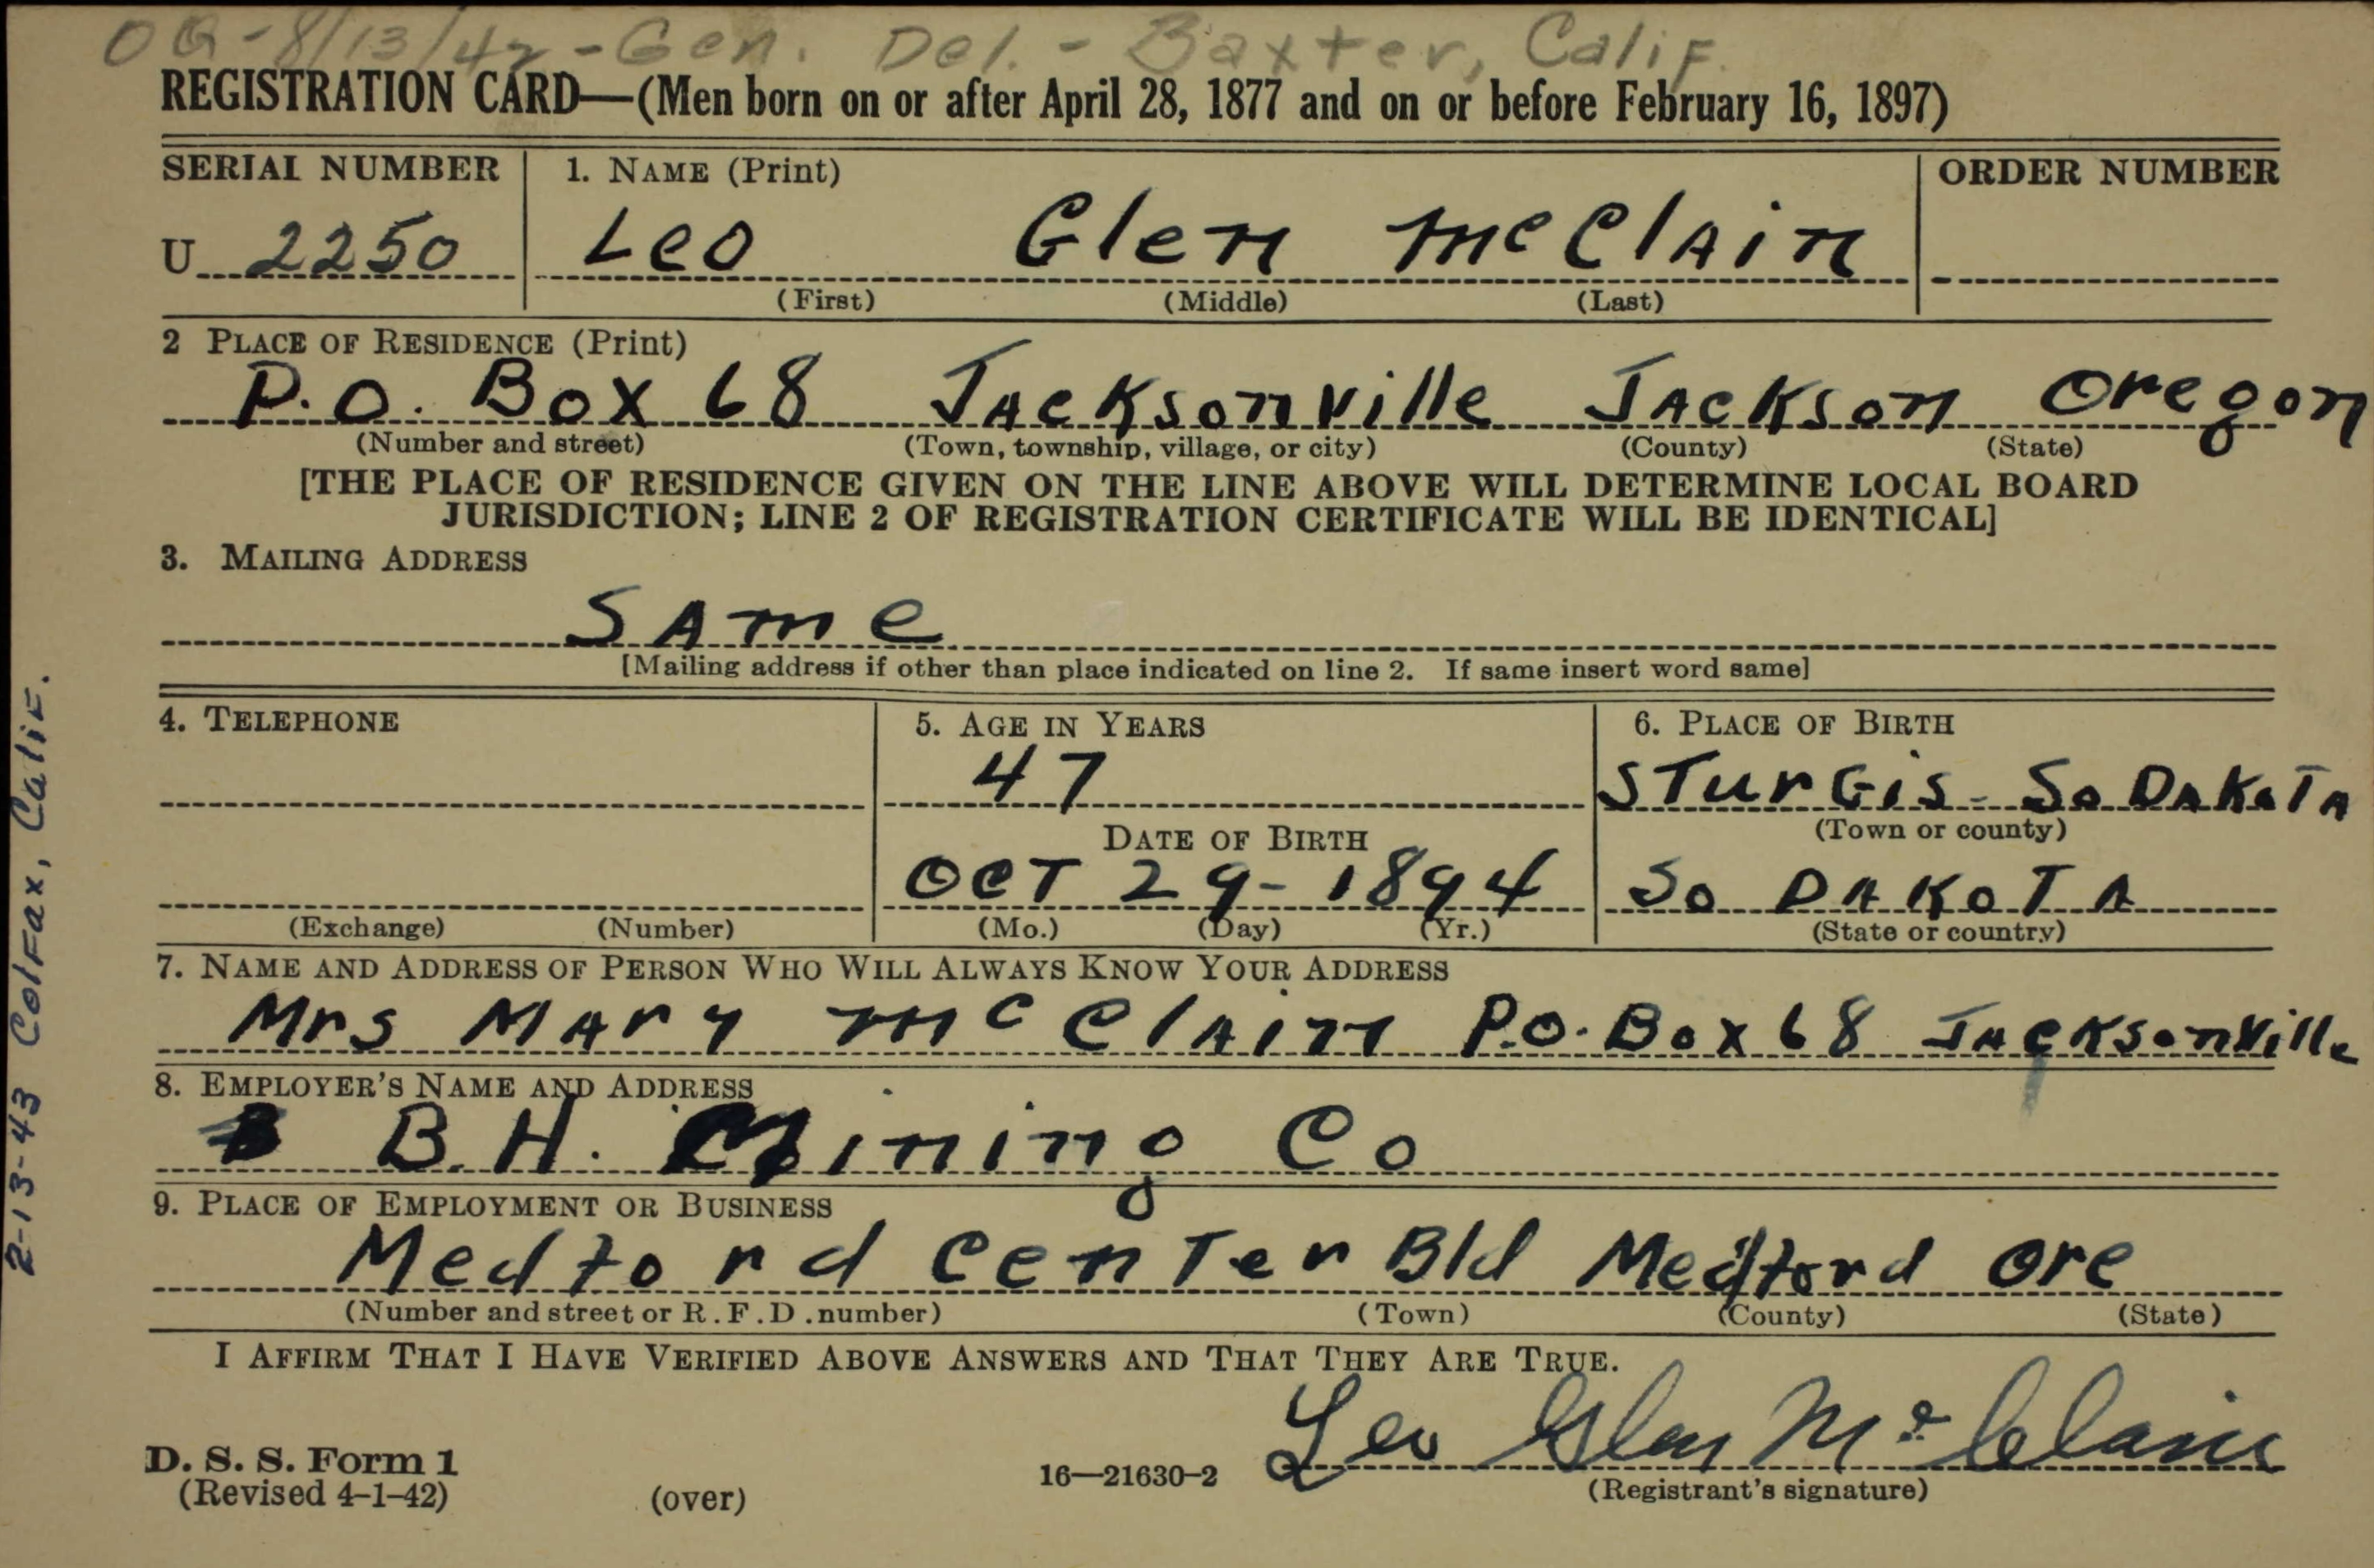 OG-8/13/42-Gen. Del. - Baxter, Calif.
REGISTRATION CARD—(Men born on or after April 28, 1877 and on or before February 16, 1897)
SERIAL NUMBER 1. NAME (Print) ORDER NUMBER
U 2250 Leo Glen McClain
(First) (Middle) (Last)
2 PLACE OF RESIDENCE (Print)
P.O. Box 68 Jacksonville Jackson Oregon
(Number and street) (Town, township, village, or city) (County) (State)
[THE PLACE OF RESIDENCE GIVEN ON THE LINE ABOVE WILL DETERMINE LOCAL BOARD
JURISDICTION; LINE 2 OF REGISTRATION CERTIFICATE WILL BE IDENTICAL]
3. MAILING ADDRESS
SAme
[Mailing address if other than place indicated on line 2. If same insert word same]
4. TELEPHONE 5. AGE IN YEARS 6. PLACE OF BIRTH
47 STurGis - So DAKoTA
DATE OF BIRTH (Town or county)
OCT 29-1894 So DAKoTA
(Exchange) (Number) (Mo.) (Day) (Yr.) (State or country)
7. NAME AND ADDRESS OF PERSON WHO WILL ALWAYS KNOW YOUR ADDRESS
Mrs MAry McClAin P.O. Box 68 JAcksonville
8. EMPLOYER'S NAME AND ADDRESS
B.H. Mining Co
9. PLACE OF EMPLOYMENT OR BUSINESS
Medford CenTer Bld Medford Ore
(Number and street or R.F.D. number) (Town) (County) (State)
I AFFIRM THAT I HAVE VERIFIED ABOVE ANSWERS AND THAT THEY ARE TRUE.
Leo Glen McClain
D. S. S. Form 1
(Revised 4-1-42) (over) 16—21630-2 (Registrant's signature)
2-13-43 Colfax, Calif.